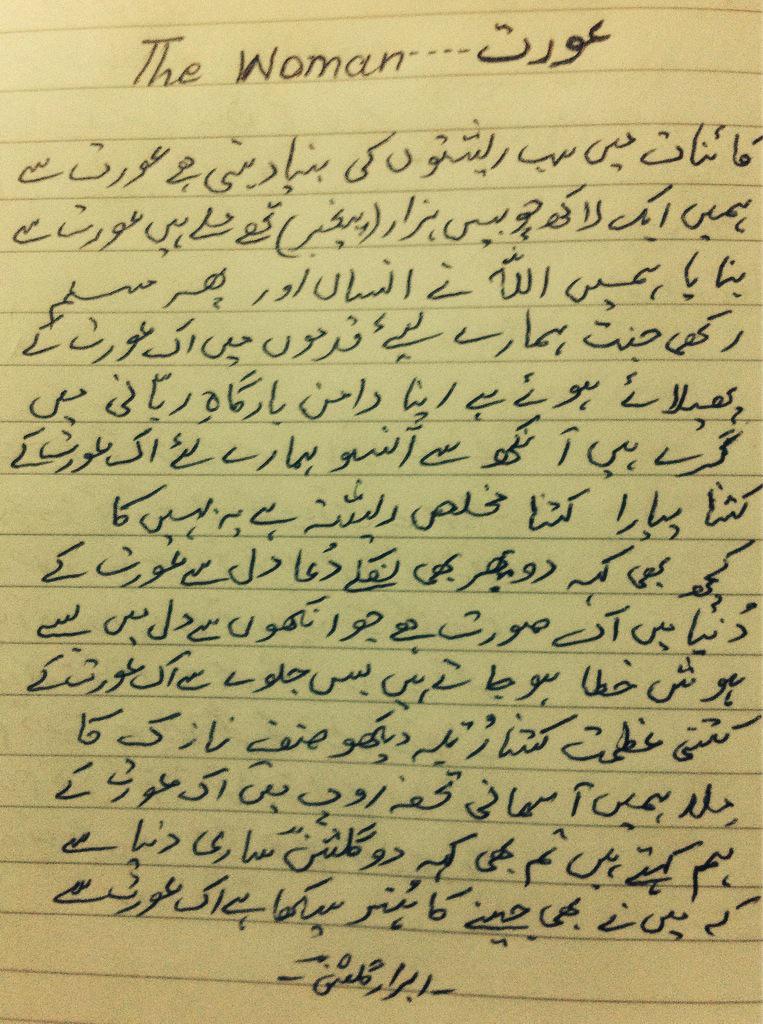 The Woman----عورت
کائنات میں سب رشتوں کی بنیاد بنتی ہے عورت سے
ہمیں ایک لاکھ چوبیس ہزار (پیغمبر) تحفے ملے ہیں عورت سے
بنایا ہمیں اللہ نے انسان اور پھر مسلم
رکھی جنت ہمارے لیئے قدموں میں اک عورت کے
پھیلائے ہوئے ہے اپنا دامن بارگاہِ ربّانی میں
گرے ہیں آنکھ سے آنسو ہمارے لئے اک عورت کے
کتنا پیارا کتنا مخلص رشتہ ہے یہ بہن کا
کچھ بھی کہہ دو پھر بھی نکلے دُعا دل سے عورت کے
دُنیا میں اک صورت ہے جو انکھوں سے دل میں بسے
ہوش خطا ہو جاتے ہیں بس جلوے سے اک عورت کے
کتنی عظمت کتنا رُتبہ دیکھو صنفِ نازک کا
مِلا ہمیں آسمانی تحفہ روپ میں اک عورت کے
ہم کہتے ہیں تم بھی کہہ دو گلشن ساری دنیا سے
کہ میں نے بھی جینے کا ہُنر سیکھا ہے اک عورت سے
-ابرار گلشن-